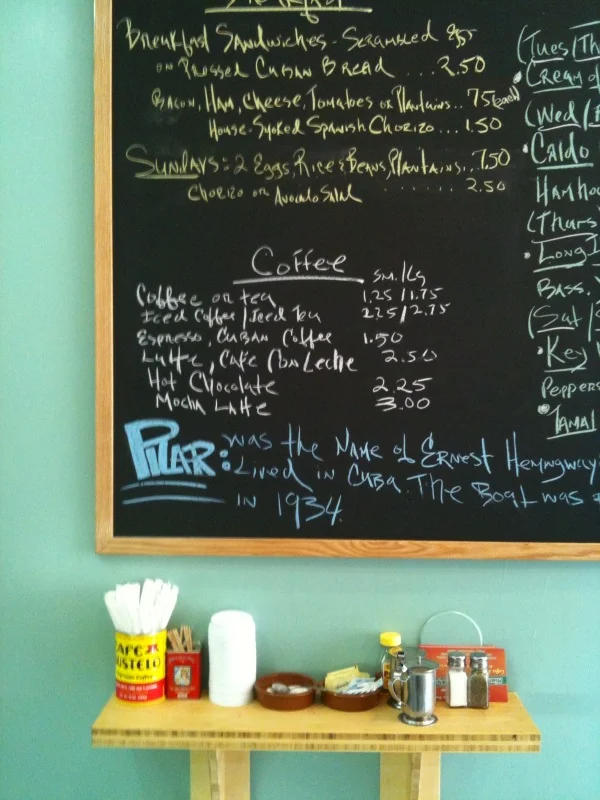 Breakfast
Breakfast Sandwiches - Scrambled Egg
on Pressed Cuban Bread .... 2.50
Bacon, Ham, Cheese, Tomatoes or Plantains.. 75 (each)
House-Smoked Spanish Chorizo ... 1.50
Sundays: 2 Eggs, Rice & Beans, Plantains... 7.50
Chorizo or Avocado Salad ...... 2.50
Coffee
Sm./Lg
Coffee or tea 1.25/1.75
Iced Coffee/Iced Tea 2.25/2.75
Espresso, Cuban Coffee 1.50
Latte, Cafe Con Leche 2.50
Hot Chocolate 2.25
Mocha Latte 3.00
Pilar: was the Name of Ernest Hemingway
Lived in Cuba. The Boat was
in 1934.
(Tues/Th
• Cream of
(Wed/
• Caldo
Ham ho
(Thurs
• Long I
Bass,
(Sat/
• Key
Peppers
• Tamal
CAFE
BUSTELO